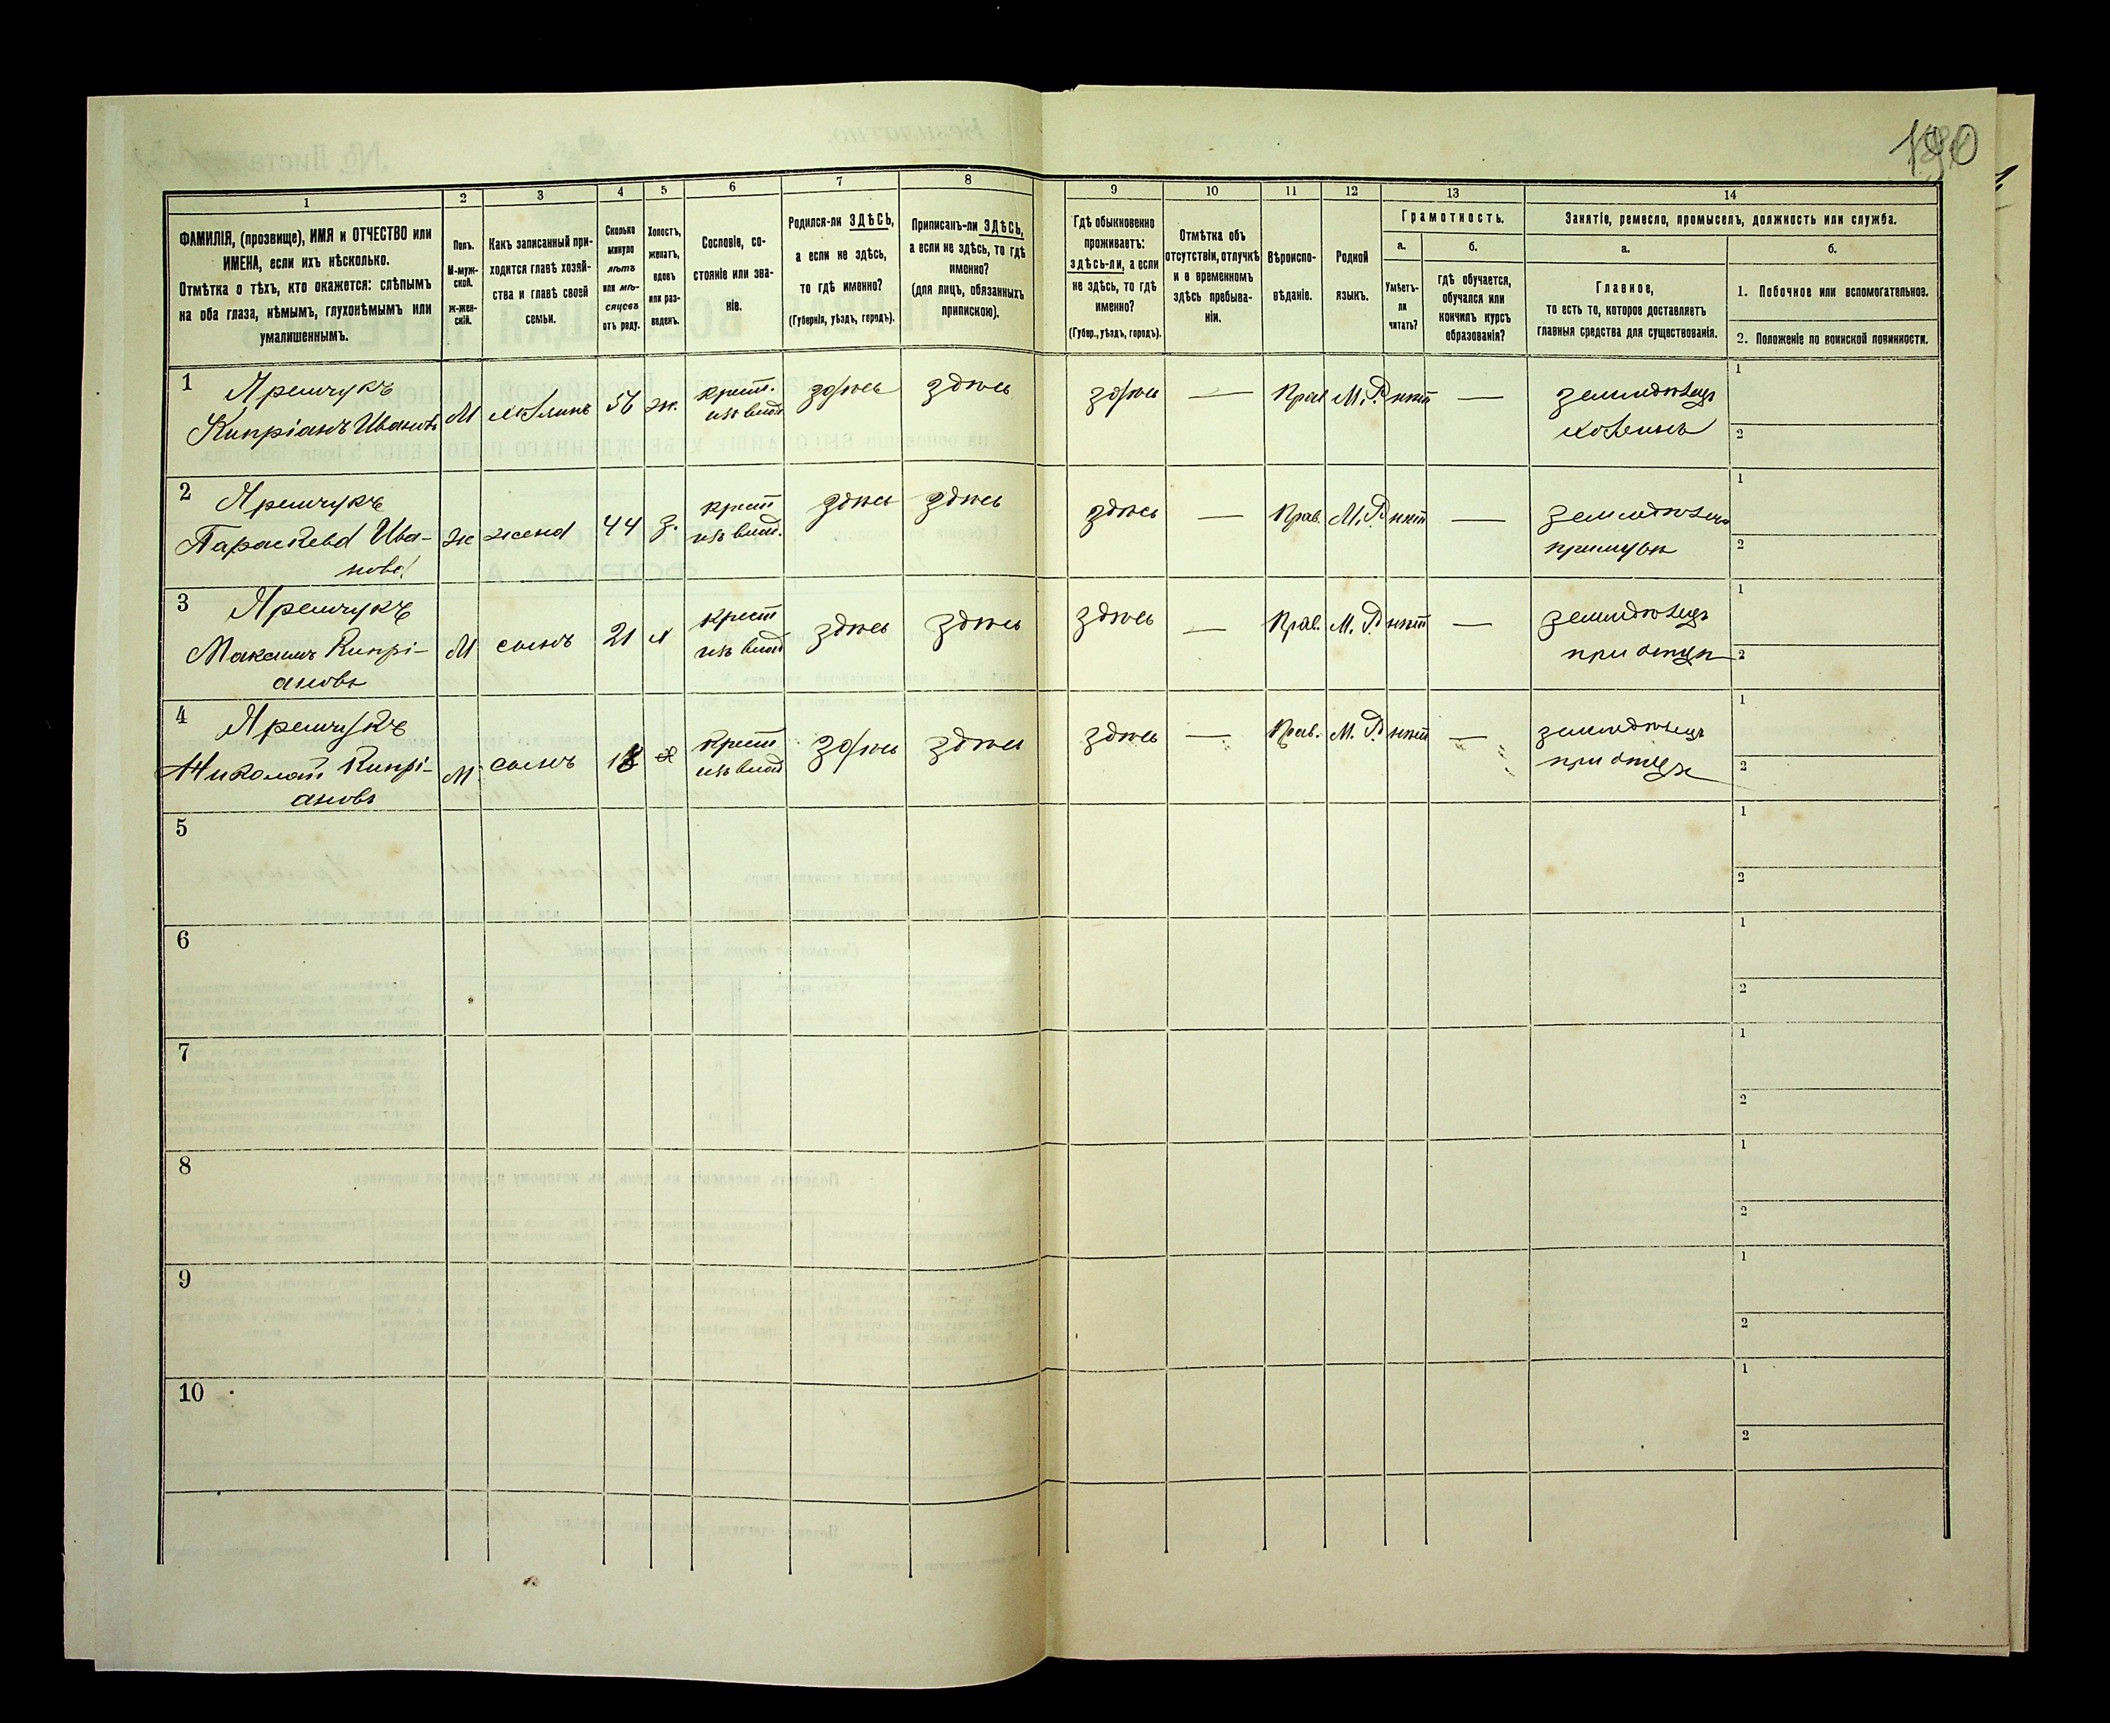 190
1
2
3
4
5
6
7
8
9
10
11
12
13
14
ФАМИЛІЯ, (прозвище), ИМЯ и ОТЧЕСТВО или
ИМЕНА, если ихъ нѣсколько.
Отмѣтка о тѣхъ, кто окажется: слѣпымъ
на оба глаза, нѣмымъ, глухонѣмымъ или
умалишеннымъ.
Полъ.
М-муж-
ской.
ж-жен-
скій.
Какъ записанный при-
ходится главѣ хозяй-
ства и главѣ своей
семьи.
Сколько
минуло
лѣтъ
или мѣ-
сяцевъ
отъ роду.
Холостъ,
женатъ,
вдовъ
или раз-
веденъ.
Сословіе, со-
стояніе или зва-
ніе.
Родился-ли ЗДѢСЬ,
а если не здѣсь,
то гдѣ именно?
(Губернія, уѣздъ, городъ).
Приписанъ-ли ЗДѢСЬ,
а если не здѣсь, то гдѣ
именно?
(для лицъ, обязанныхъ
припискою).
Гдѣ обыкновенно
проживаетъ:
здѣсь-ли, а если
не здѣсь, то гдѣ
именно?
(Губер., уѣздъ, городъ).
Отмѣтка объ
отсутствіи, отлучкѣ
и о временномъ
здѣсь пребыва-
ніи.
Вѣроиспо-
вѣданіе.
Родной
языкъ.
Грамотность.
а.
Умѣетъ-
ли
читать?
б.
гдѣ обучается,
обучался или
кончилъ курсъ
образованія?
Занятіе, ремесло, промыселъ, должность или служба.
а.
Главное,
то есть то, которое доставляетъ
главныя средства для существованія.
б.
1. Побочное или вспомогательное.
2. Положеніе по воинской повинности.
1
Яремчукъ
Кипріанъ Ивановъ
М
хозяинъ
56
ж.
крест.
изъ влад.
здѣсь
здѣсь
здѣсь
—
Прав
М.Р.
нѣт
—
земледѣлец
хозяинъ
1
2
2
Яремчукъ
Параскева Ива-
нова
ж
жена
44
з.
крест
изъ влад.
здѣсь
здѣсь
здѣсь
—
Прав.
М.Р
нѣт
—
земледѣлец
при мужѣ
1
2
3
Яремчукъ
Максимъ Кипрі-
ановъ
М
сынъ
21
х
крест
изъ влад
здѣсь
здѣсь
здѣсь
—
Прав.
М. Р.
нѣт
—
земледѣлецъ
при отцѣ
1
2
4
Яремчукъ
Николай Кипрі-
ановъ
М.
сынъ
18
х
крест
изъ влад
здѣсь
здѣсь
здѣсь
—
Прав.
М. Р
нѣт
—
земледѣлецъ
при отцѣ
1
2
5
1
2
6
1
2
7
1
2
8
1
2
9
1
2
10
1
2